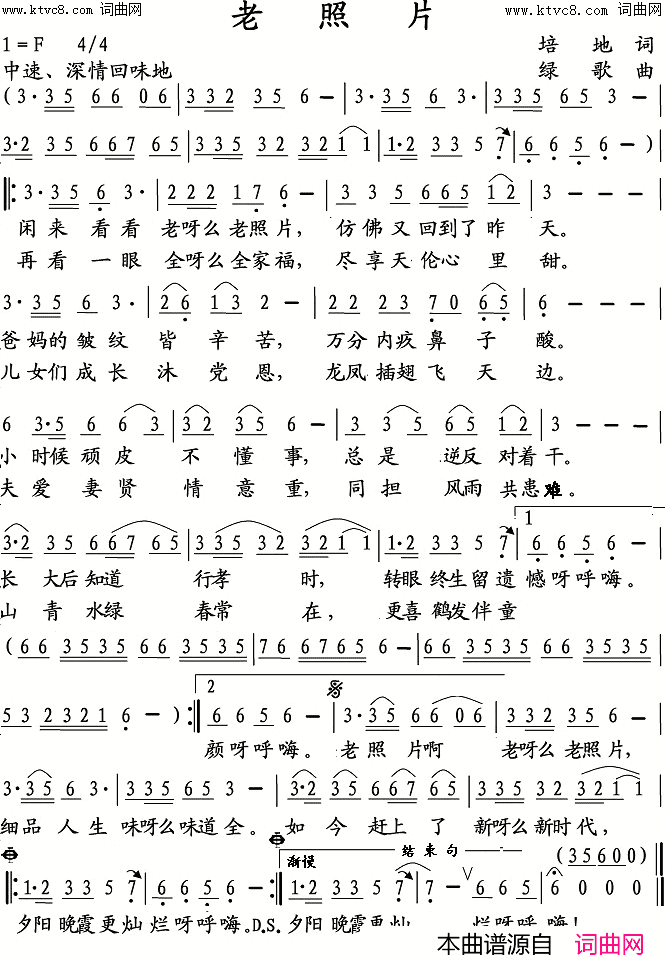 www.ktvc8.com 词曲网 老 照 片 www.ktvc8.com 词曲网
1=F 4/4 培 地 词
中速、深情回味地 绿 歌 曲
(3·35 66 06|332 35 6 -|3·35 66 3·|335 65 3 -|
3·2 35 667 65|335 32 321 1|1·2 33 5 7|6 6 5 6 -)|
3·35 6 3·|222 17 6 -|3 35 665 12|3 - - -|
闲来 看看 老呀么老照片, 仿佛又回到了昨 天。
再看 一眼 全呀么全家福, 尽享天伦心 里 甜。
3·35 6 3·|26 13 2 -|22 23 70 65|6 - - -|
爸妈的皱纹 皆 辛 苦, 万分内疚鼻 子 酸。
儿女们成长 沐 党 恩, 龙凤插翅飞 天 边。
6 3·5 66 63|32 35 6 -|3 35 65 65|3 - - -|
小 时候 顽 皮 不 懂 事, 总 是 逆反 对着干。
夫 爱 妻 贤 情 意 重, 同 担 风雨 共患难。
1
3·2 35 667 65|335 32 321 1|1·2 33 5 7|6 6 5 6 -|
长 大后知道 行孝 时, 转眼终生留遗 憾呀呼嗨。
山 青 水绿 春常 在, 更喜鹤发伴童
(66 3535 66 3535|76 6765 6 -|66 3535 66 3535|
2
53 2321 6 -):|6 6 5 6 -|3·35 66 06|332 35 6 -|
颜呀呼嗨。老照 片啊 老呀么老照片,
3·35 6 3·|335 65 3 -|3·2 35 667 65|335 32 321 1|
细品 人生 味呀么味道全。如 今 赶上 了 新呀么新时代,
渐慢 结束句 (35600)
1·2 33 5 7|6 6 5 6 -:|1·2 33 5 7|7 - 6 6 5|6 0 0 0||
夕阳 晚霞更灿 烂呀呼嗨。D.S. 夕阳 晚霞更灿 烂呀呼嗨!
本曲谱源自 词曲网